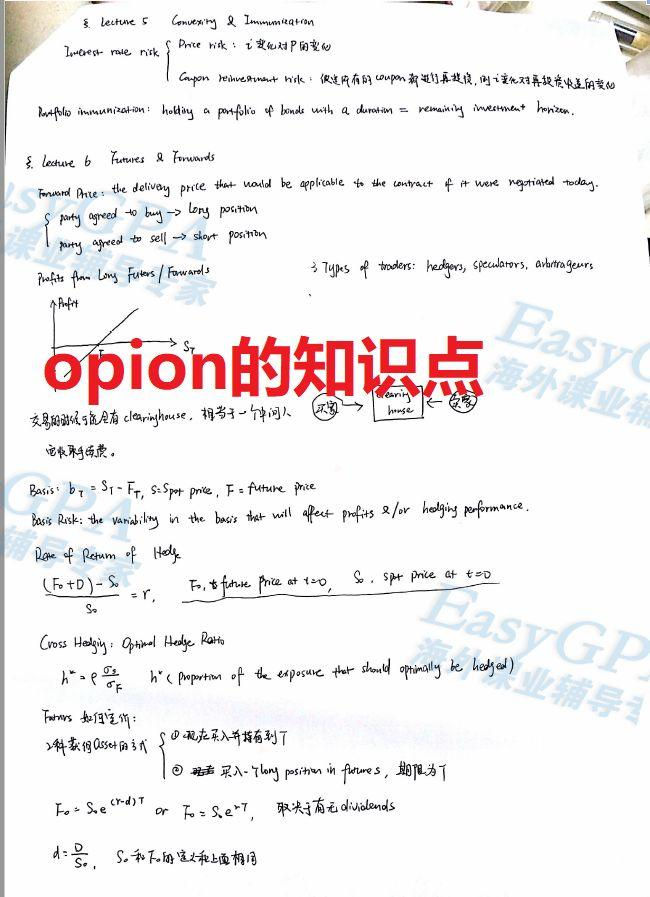 §. Lecture 5 Convexity & Immunization
Interest rate risk { Price risk: i变化对P的变化
Coupon reinvestment risk: 假设所有的coupon都进行再投资, 则i变化对再投资收益的变化
Portfolio immunization: holding a portfolio of bonds with a duration = remaining investment horizon.
§. Lecture 6 Futures & Forwards
Forward Price: the delivery price that would be applicable to the contract if it were negotiated today.
{ party agreed to buy → long position
party agreed to sell → short position
Profits from Long Futers/Forwards
3 Types of traders: hedgers, speculators, arbitrageurs
Profit
F
S_T
opion的知识点
交易的时候可能会有clearinghouse, 相当于一个中间人
买家 → clearing house ← 卖家
会收取手续费。
Basis: b_T = S_T - F_T, S=Spot price, F = future price
Basis Risk: the variability in the basis that will affect profits &/or hedging performance.
Rate of Return of Hedge
(F₀+D) - S₀ / S₀ = r, F₀, future price at t=0, S₀, spot price at t=0
Cross Hedging: Optimal Hedge Ratio
h* = ρ σ_S/σ_F h* (proportion of the exposure that should optimally be hedged)
Futures 如何定价:
2种获得asset的方式 { ① 现在买入并持有到T
② 买入一个long position in futures, 期限为T
F₀ = S₀e^(r-d)T or F₀ = S₀e^rT, 取决于有无dividends
d = D/S₀, S₀和F₀的定义和上面相同
EasyGPA
海外课业辅导专家
EasyGPA
海外课业辅导专家